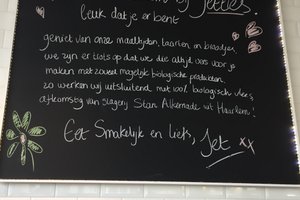 bij Jetties!
leuk dat je er bent
geniet van onze maaltijden, taarten en broodjes,
we zijn er trots op dat we die altijd vers voor je
maken met zoveel mogelijk biologische producten
zo werken wij uitsluitend met 100% biologisch vlees,
afkomstig van slagerij Stan Alkemade uit Haarlem!
Eet Smakelijk en liefs,
Jet xx